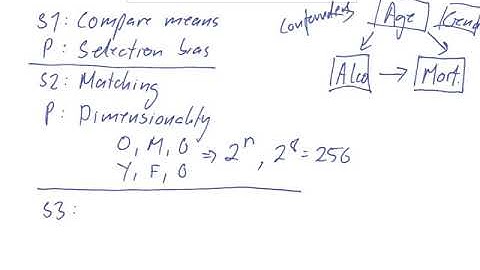 S1: Compare means
P: Selection bias
S2: Matching
P: Dimensionality
O, M, O
Y, F, O
⇒ 2^n, 2^8 = 256
S3:
Confounders
Age
Alco → Mort.